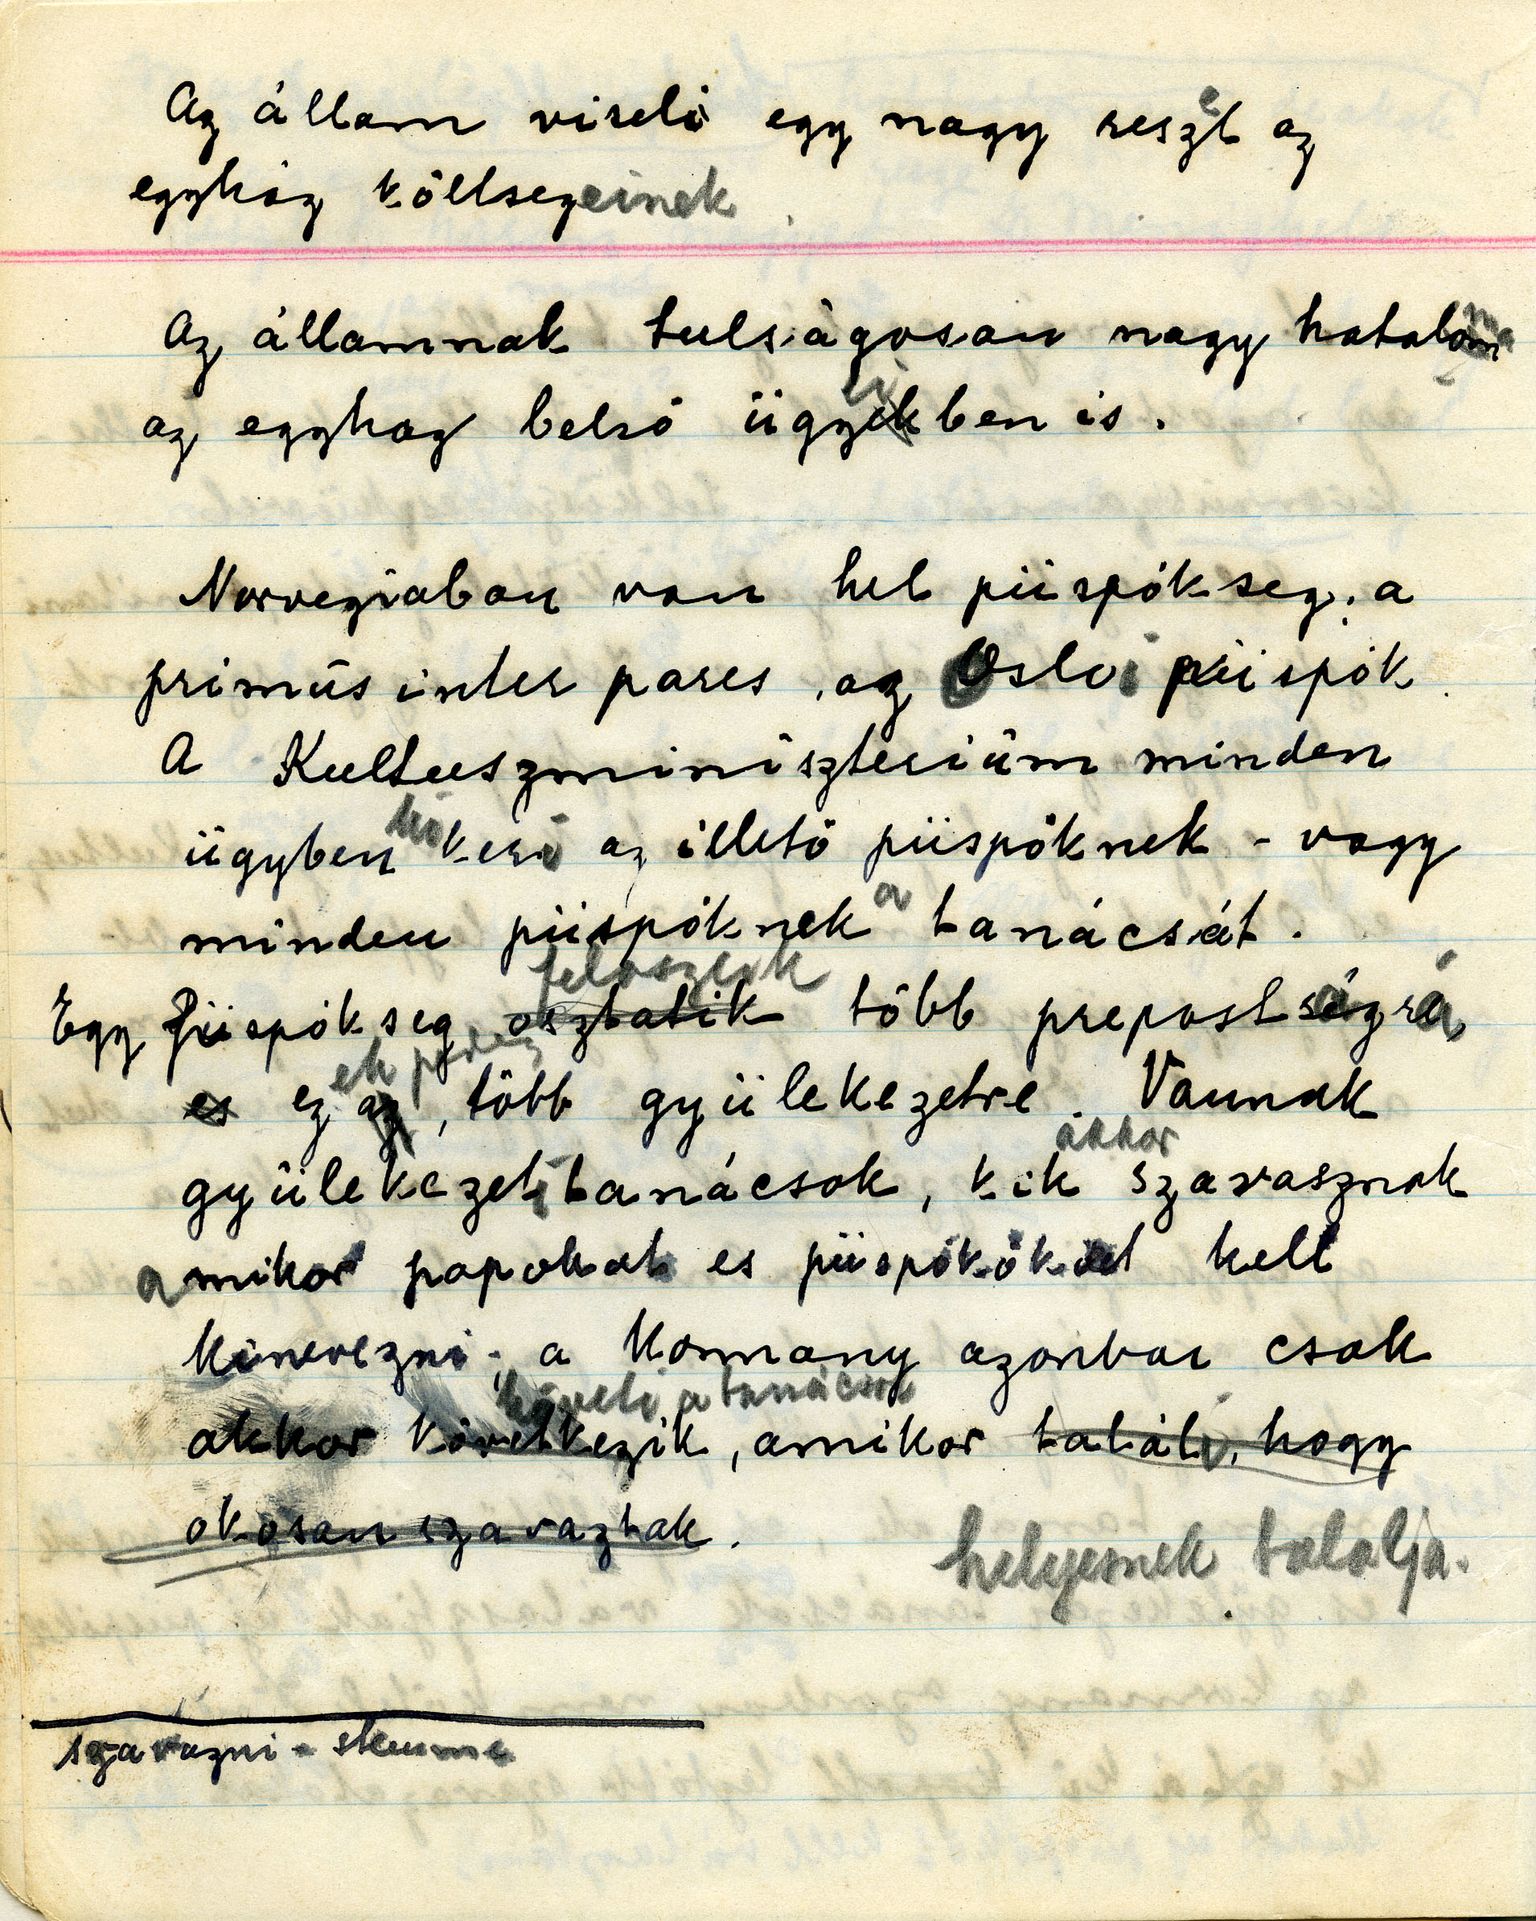 Az állam viseli egy nagy reszét az
egyház költsegeinek
Az államnak tulságosan nagy hatalma
az egyhaz belsö ügyeiben is.
Norvegiaban van het püispökseg; a
primūs inter pares, az Osloi püispök
A Kultuszminisztériūm minden
ki
ügyben keri az illetö püispöknek - vagy
minden püispöknek a tanácsát.
feloszlik
Egy Püispökseg osztatik több prepostságra
ek pedig
es ez az, több gyülekezetre. Vannak
akkor
gyülekezeti tanácsok, kik szavasznak
amikor papokat es püispököket kell
kinevezni; a Kormany azonban csak
követi a tanácsot
akkor következik, amikor talál, hogy
okosan szavaztak.
helyesnek talalja.
szavazni - stemme